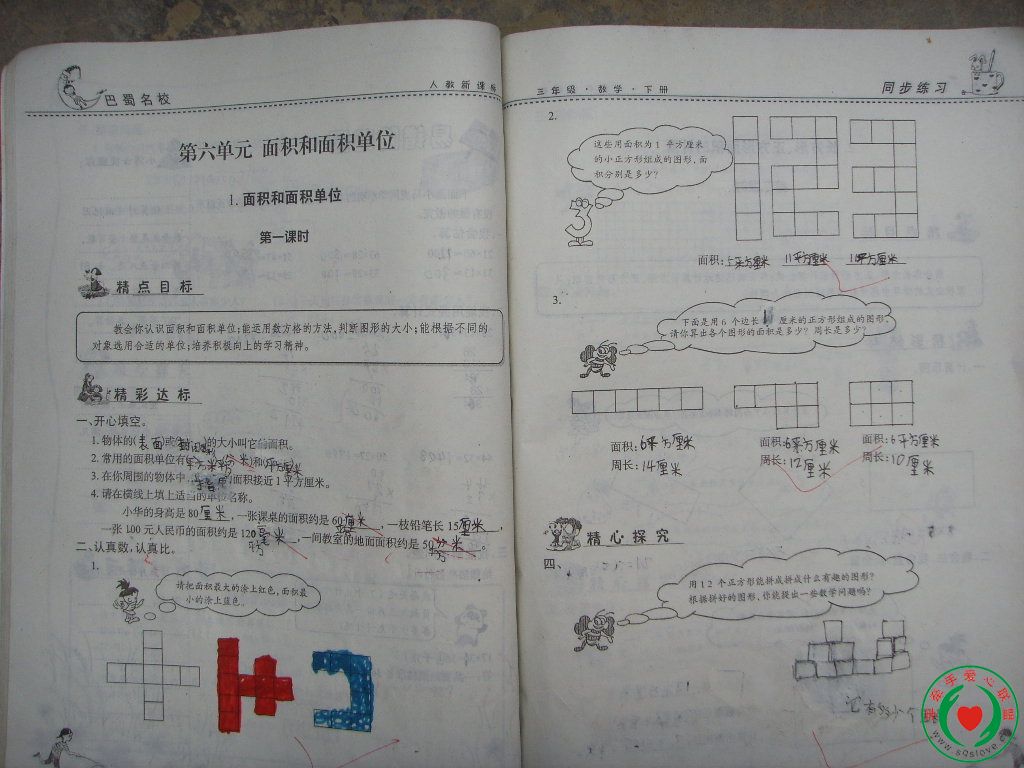 巴蜀名校
人教新课标
第六单元 面积和面积单位
1. 面积和面积单位
第一课时
精点目标
教会你认识面积和面积单位;能运用数方格的方法,判断图形的大小;能根据不同的
对象选用合适的单位;培养积极向上的学习精神。
精彩达标
一、开心填空。
1. 物体的(表面)或 的大小叫它的面积。
2. 常用的面积单位有
3. 在你周围的物体中, 的面积接近1平方厘米。
4. 请在横线上填上适当的单位名称。
小华的身高是80厘米,一张课桌的面积约是60 ,一枝铅笔长15厘米,
一张100元人民币的面积约是120 ,一间教室的地面面积约是50 。
二、认真数,认真比。
1.
请把面积最大的涂上红色,面积最
小的涂上蓝色。
三年级·数学·下册
同步练习
2.
这些用面积为1平方厘米
的小正方形组成的图形,面
积分别是多少?
面积:5平方厘米 11平方厘米 11平方厘米
3.
下面是用6个边长1厘米的正方形组成的图形,
请你算出各个图形的面积是多少?周长是多少?
面积:6平方厘米 面积:6平方厘米 面积:6平方厘米
周长:14厘米 周长:12厘米 周长:10厘米
精心探究
四、
用12个正方形能拼成拼成什么有趣的图形?
根据拼好的图形,你能提出一些数学问题吗?
手牵手爱心联盟
www.sqslove.c